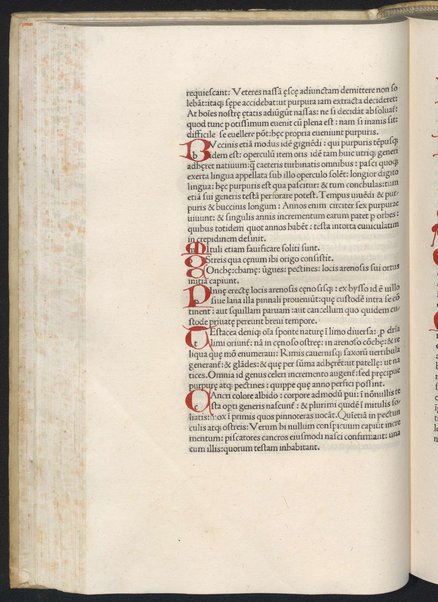 requiescant: Veteres nassā escę adiunctam demittere non so
lebāt: itaq; sępe accidebat: ut purpura iam extracta decideret:
At hoies nostrę ętatis adiūgūt nassas: ne si decidāt absoluāt:
quod tunc potissimum euenit cū plena est: nam si inanis sit:
difficile se euellere pōt: hęc propria eueniunt purpuris.
B Vccinis etiā modus idē gignēdi: qui purpuris tēpusq;
b idem est: operculū item oris idē tam buic utriq; generi
adhęret natiuum: q̄ cæteris turbinatis omnibus: pasci quoq;
exerta lingua appellata sub illo operculo solēt: longior digito
lingua: hęc purpuris est qua pascitur: & tum conchulas: tum
etiā sui generis testā perforare potest. Tempus uiuēdi & pur-
puris & buccinis longum: Annos enim circiter sex purpuræ
uiuunt: & singulis annis incrementum earum patet p orbes:
quibus totidem quot annos habēt: testa intorta cuniculatim
in crepidinem desinit.
M Ituli etiam fauificare soliti sunt.
O Streis qua cęnum ibi origo consistit.
C Onchę: chamę: ūgues: pectines: locis arenosis sui ortus
initia capiunt.
P Innę erectę locis arenosis cęnosisq;: ex bysso id ē uillo
siue lana illa pinnali proueniūt: quę custodē intra se cō
tinent: aut squillam paruam: aut cancellum quo quidem cu-
stode priuatę pereunt breui tempore.
T Estacea deniq; oīa sponte naturę ī limo diuersa: p dr̄ia
t limi oriunt̄: nā in cęnoso ostreę: in arenoso cōchę: & re
liqua quę mō enumeraui: Rimis cauernisq; saxorū uertibula
generant̄: & glādes: & quę per sūma adhęrēt: ut patellę: ut na
tices. Omnia id genus celeri incremento augent̄: sed pręcipue
purpurę atq; pectines: quippe quę anno perfici possint.
C Ancri colore albido: corpore admodū pusi: ī nōnullis te
c sta opti generis nascunt̄: & plurimi quidē ī mitulis so-
liatis: mox ī primis quos pinnoteras uocāt. Quietiā in pectun
culis atq; ostreis: Verum hi nullum conspicuum capiūt incre
mentum: piscatores cancros eiusmodi nasci confirmant: una
cum illis: quorum testam inhabitant.